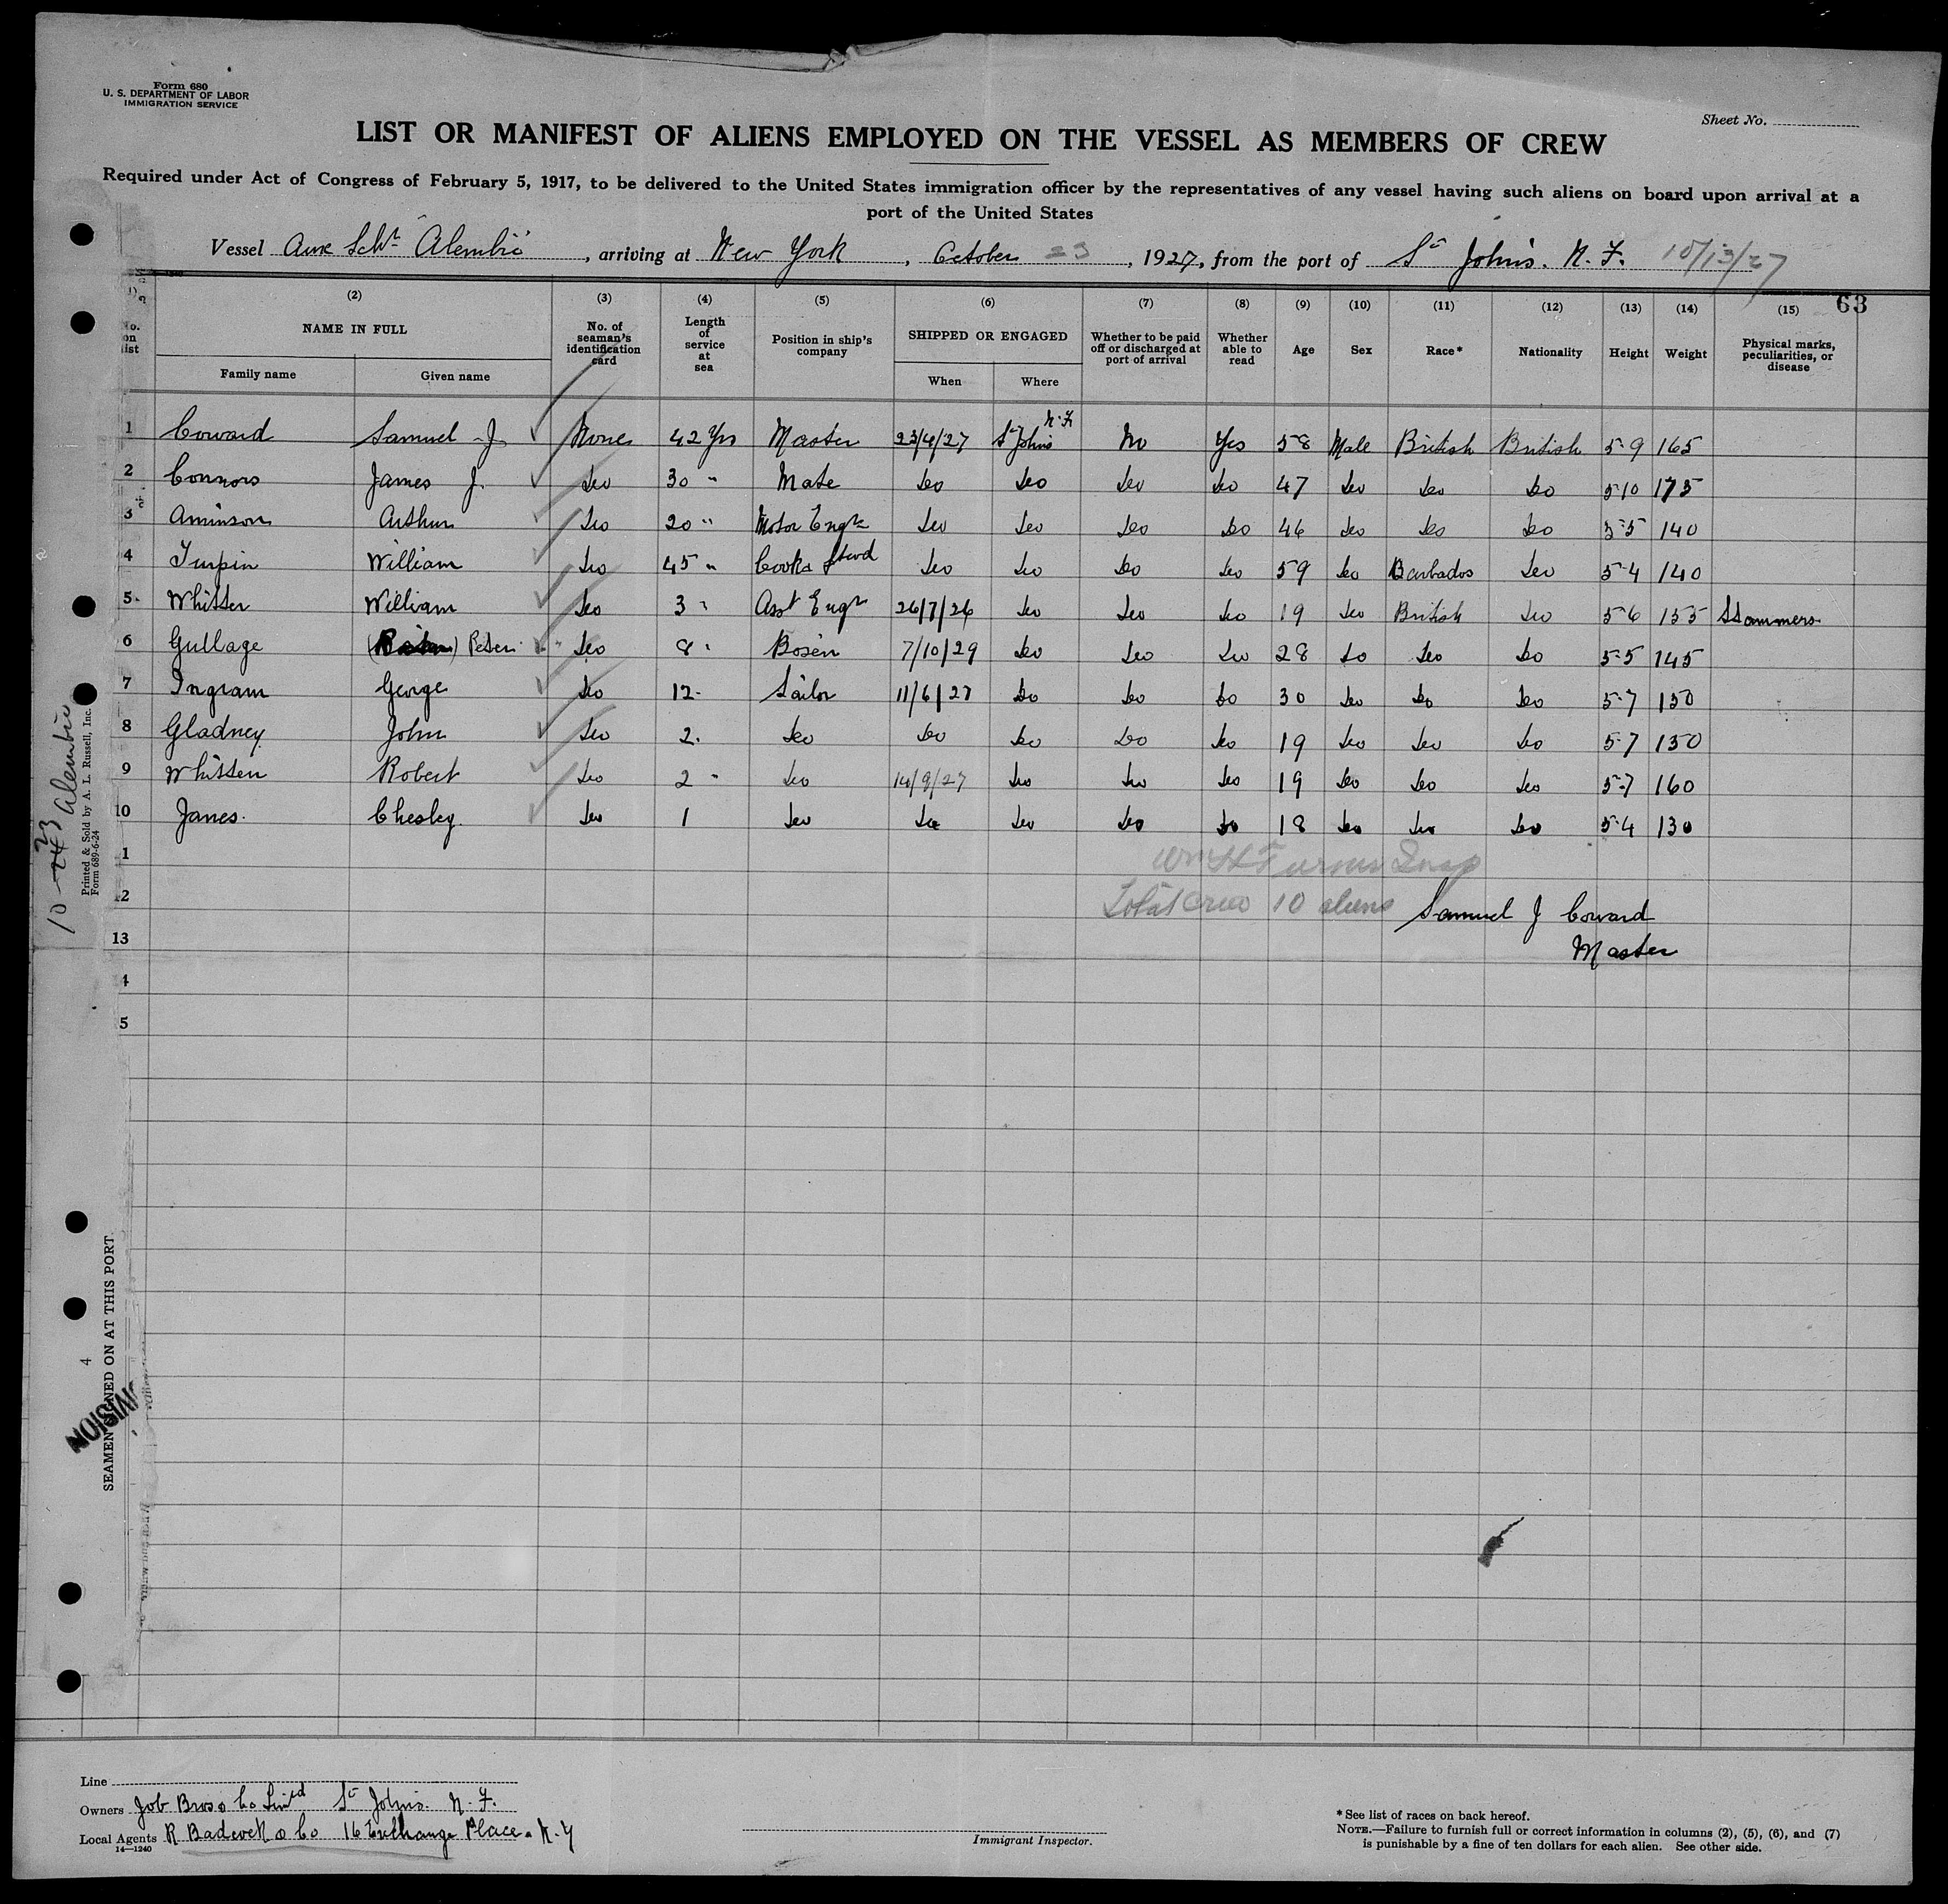 Form 680
U. S. DEPARTMENT OF LABOR
IMMIGRATION SERVICE
Sheet No.
LIST OR MANIFEST OF ALIENS EMPLOYED ON THE VESSEL AS MEMBERS OF CREW
Required under Act of Congress of February 5, 1917, to be delivered to the United States immigration officer by the representatives of any vessel having such aliens on board upon arrival at a
port of the United States
Vessel Aux Schr Alembic, arriving at New York, October 23, 1927, from the port of St Johns. N. F. 10/13/27
63
(2) (3) (4) (5) (6) (7) (8) (9) (10) (11) (12) (13) (14) (15)
No. on list NAME IN FULL Family name Given name No. of seaman's identification card Length of service at sea Position in ship's company SHIPPED OR ENGAGED When Where Whether to be paid off or discharged at port of arrival Whether able to read Age Sex Race* Nationality Height Weight Physical marks, peculiarities, or disease
1 Coward Samuel J. None 42 Yrs Master 23/4/27 St Johns N.F No Yes 58 Male British British 5-9 165
2 Connors James J. Do 30 " Mate Do Do Do Do 47 Do Do Do 5-10 175
3 Aminson Arthur Do 20 " Motor Engr Do Do Do Do 46 Do Do Do 5-5 140
4 Turpin William Do 45 " Cook & Stwd Do Do Do Do 59 Do Barbados Do 5-4 140
5 Whitten William Do 3 " Asst Engr 26/7/26 Do Do Do 19 Do British Do 5-6 155 Stammers
6 Gullage Peter Do 8 " Bosen 7/10/29 Do Do Do 28 Do Do Do 5-5 145
7 Ingram George Do 12 Sailor 11/6/27 Do Do Do 30 Do Do Do 5-7 150
8 Gladney John Do 2. Do Do Do Do Do 19 Do Do Do 5-7 150
9 Whitten Robert Do 2 " Do 14/9/27 Do Do Do 19 Do Do Do 5-7 160
10 Janes Chesley Do 1 Do Do Do Do Do 18 Do Do Do 5-4 130
1
12 Total crew 10 aliens Samuel J Coward
13 Master
4
5
10-23 Alembic
Printed & Sold by A. L. Russell, Inc.
Form 689-6-24
4
SEAMEN SIGNED ON AT THIS PORT
Line
Owners Job Bros & Co Limtd St Johns. N. F.
Local Agents R Badcock & Co 16 Exchange Place. N.Y
14—1240
Immigrant Inspector.
* See list of races on back hereof.
NOTE.—Failure to furnish full or correct information in columns (2), (5), (6), and (7)
is punishable by a fine of ten dollars for each alien. See other side.